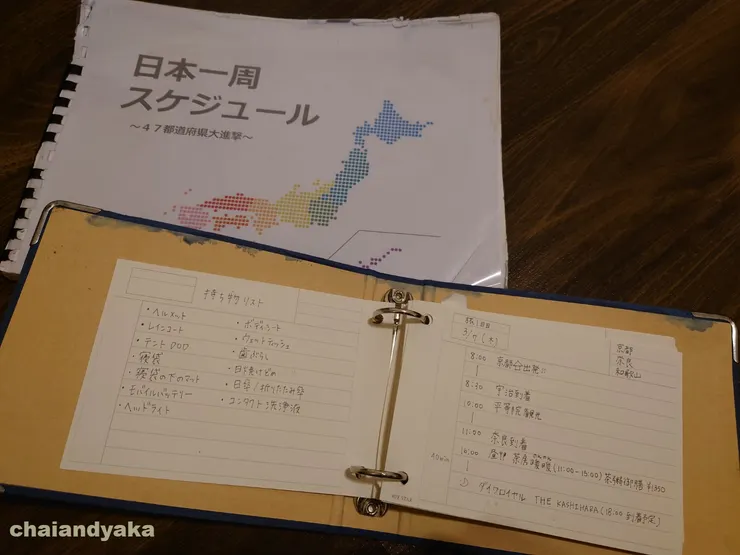 日本一周
スケジュール
～47都道府県大進撃～
持ち物リスト
・ヘルメット
・レインコート
・テント DOD
・寝袋
・寝袋の下のマット
・モバイルバッテリー
・ヘッドライト
・ボディシート
・ウェットティッシュ
・歯ぶらし
・日焼け止め
・日傘/折りたたみ傘
・コンタクト洗浄液
旅1日目
3/7(木)
京都
奈良
和歌山
8:00 京都出発
8:30 宇治到着
10:00 平等院観光
11:00 奈良到着
茶房暖暖(11:00-15:00)茶粥御膳 ¥1350
ダイワロイヤル THE KASHIHARA(18:00到着予定)
chaiandyaka